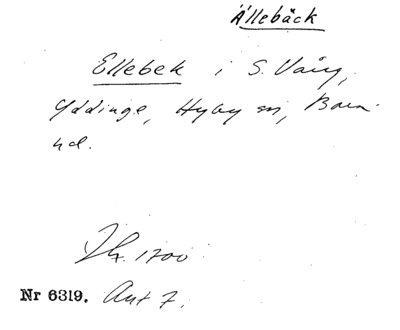 Ällebäck
Ellebek i S. Vång,
Yddinge, Hyby sn, Bara
hd.
1700
Nr 6319. Aut 7.